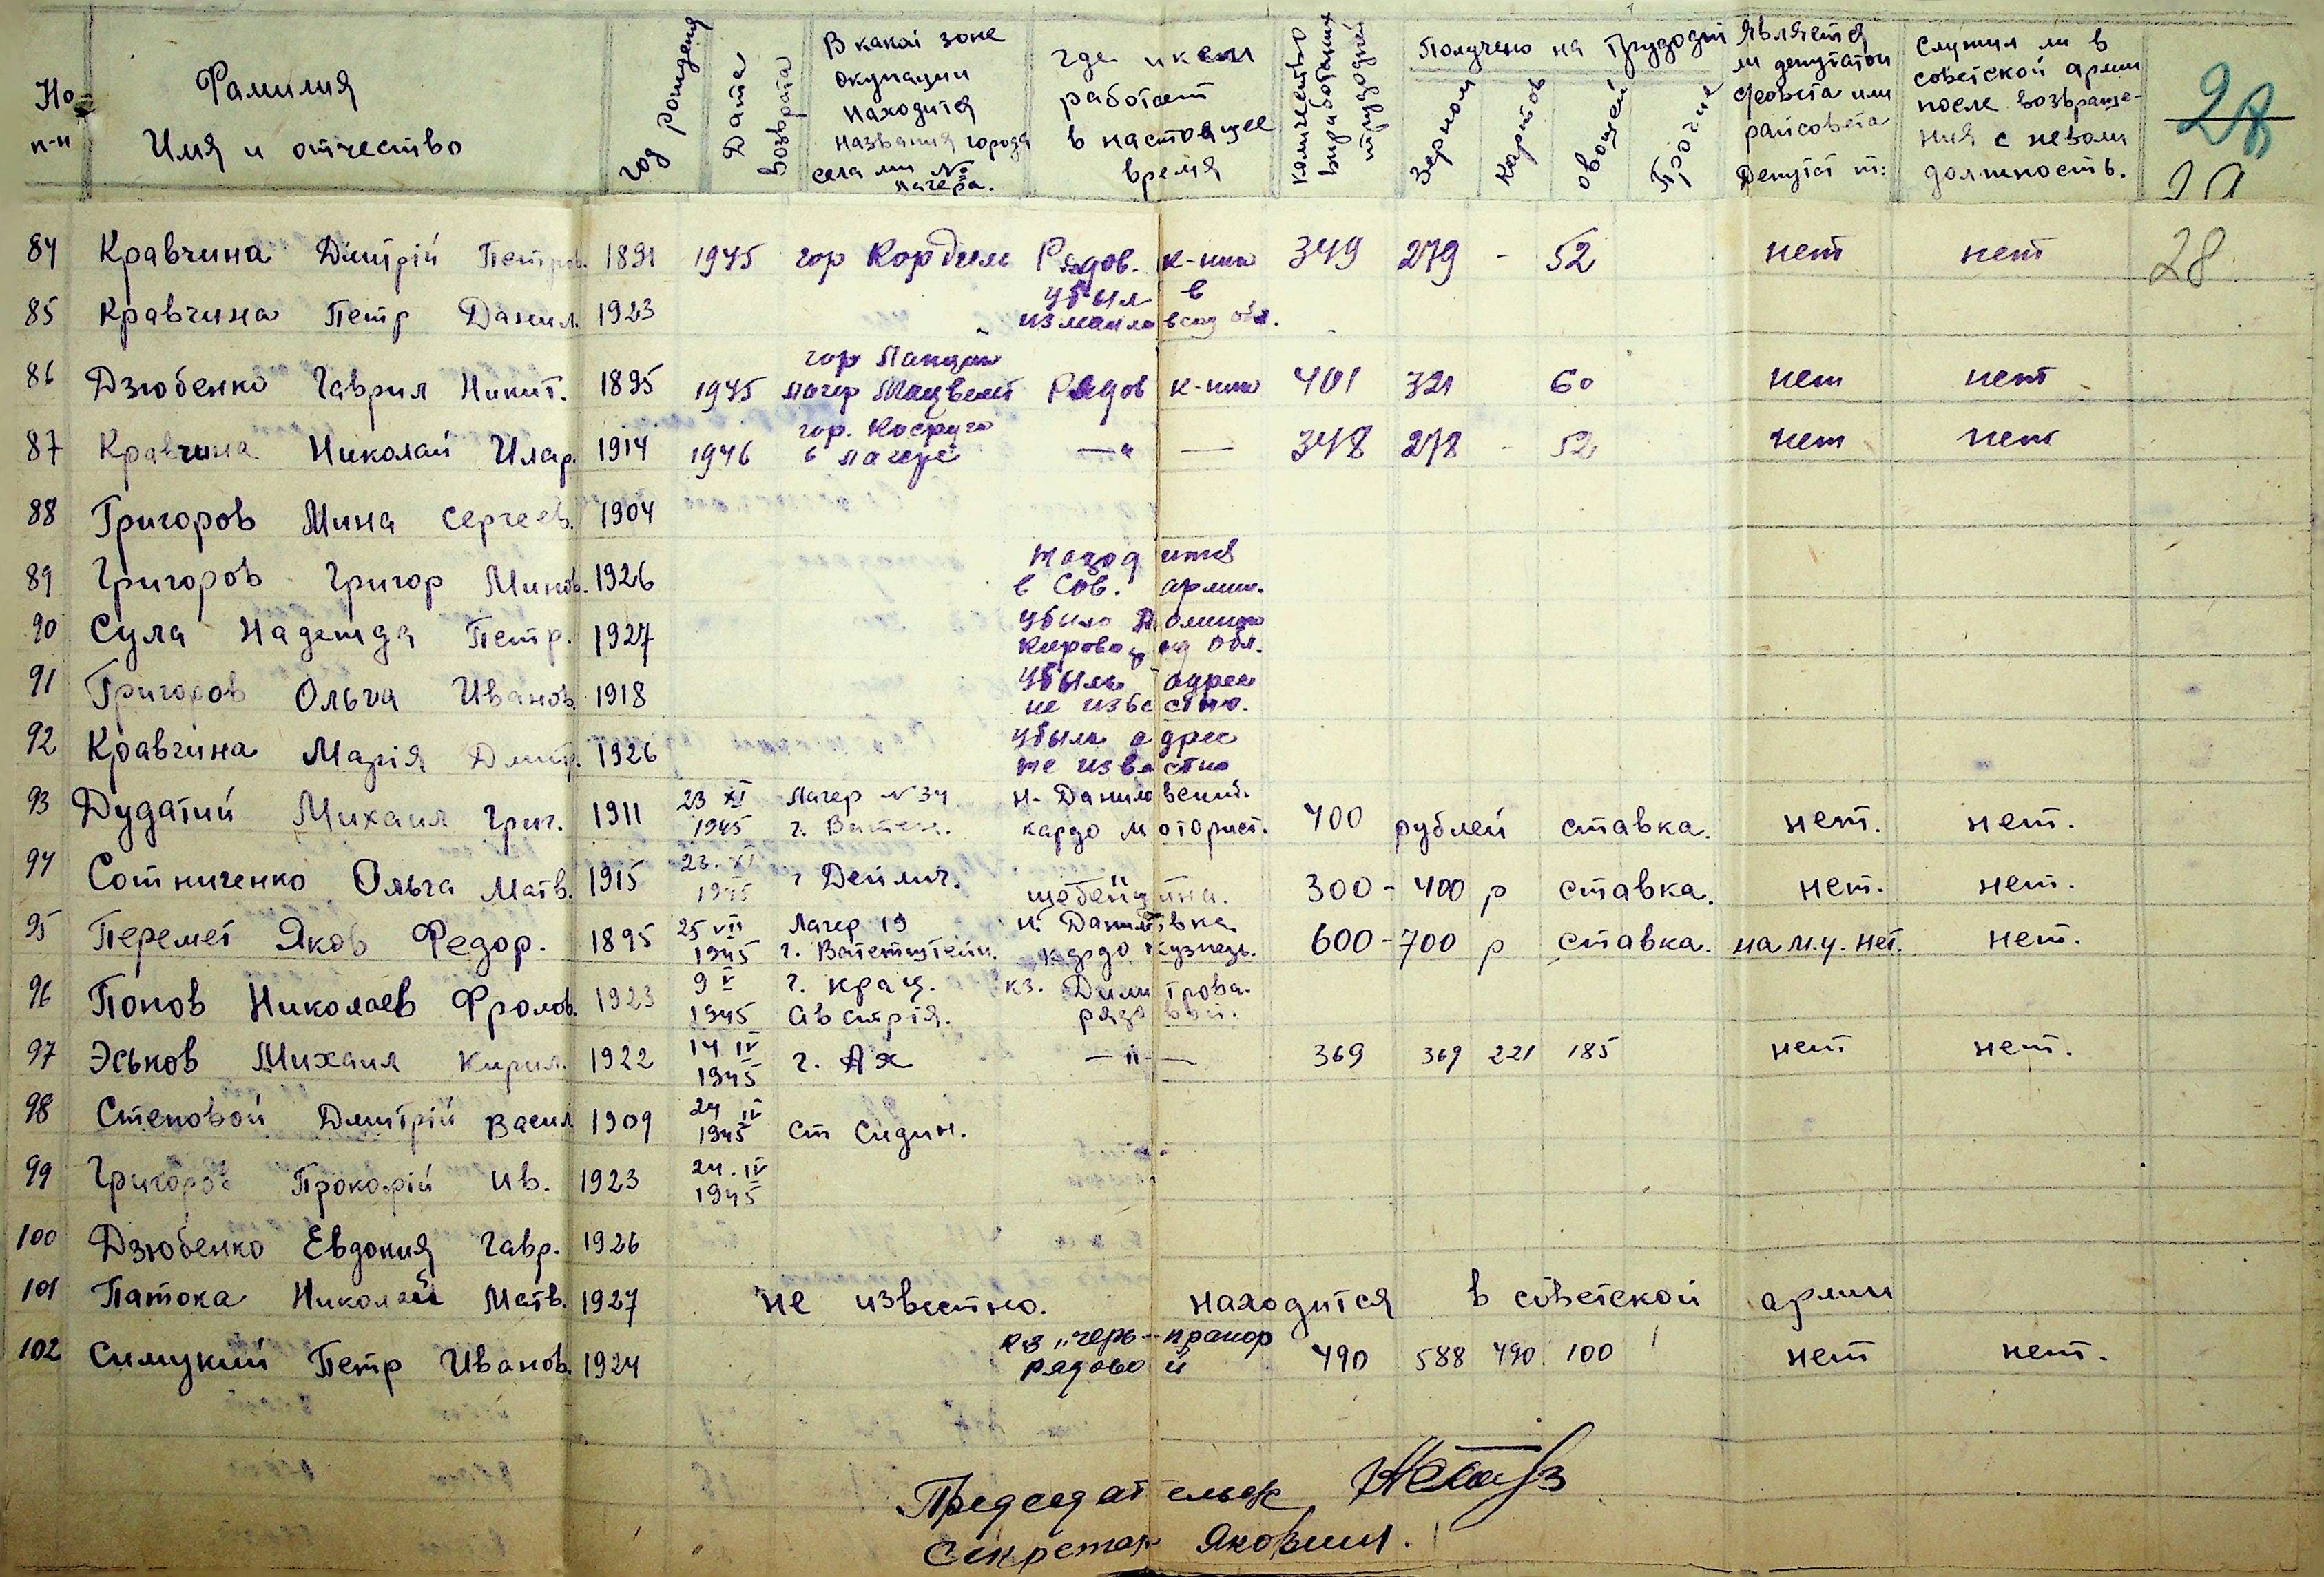 Но п-н
Фамилия
Имя и отчество
год рождения
Дата возврата
В какой зоне
окупации
находится
названия города
села или №
лагера.
Где и кем
работает
в настоящее
время
количество
выработаных
трудодней
Получено на трудодни
Зерном
картов
овощей
Прочие
Является
ли депутатом
с/совета или
райсовета
Депутат т:
Служил ли в
советской армии
после возвраще-
ния с неволи
должность.
28
84 Кравчина Дмитрій Петров. 1891 1945 гор Кордим Рядов. к-ник 349 279 - 52 нет нет 28
85 Кравчина Петр Данил. 1923 убыл в
измаиловскую обл.
86 Дзюбенко Гаврил Никит. 1895 1945 гор
лагер Рядов к-ник 401 321 60 нет нет
87 Кравчина Николай Илар. 1914 1946 гор.
в лагере —"— 348 278 - 52 нет нет
88 Григоров Мина Сергеев. 1904
89 Григоров Григор Минов. 1926 находится
в Сов. армии.
90 Сула Надежда Петр. 1927 убыла
Кировоград обл.
91 Григоров Ольга Иванов. 1918 убыла адрес
не известно.
92 Кравчина Марія Дмитр. 1926 убыла адрес
не известно
93 Дудатий Михаил Григ. 1911 23 XI
1945 Лагер N 34
г. Ватен. н- Даниловский.
кардо моторист. 400 рублей ставка. нет. нет.
94 Сотниченко Ольга Матв. 1915 23. XI
1945 г Дейлич. 300-400 р ставка. нет. нет.
95 Перемет Яков Федор. 1895 25 VII
1945 Лагер 19
г. Ватетштейн. н. Даниловка.
кардо кузнець. 600-700 р ставка. на м.у. нет. нет.
96 Попов Николаев Фролов. 1923 9 V
1945 г. крац.
Австрія. кз. Димитрова.
рядовой.
97 Эсьнов Михаил Кирил. 1922 14 IV
1945 г. Ах —"— 369 369 221 185 нет нет.
98 Степовой Дмитрій Васил 1909 24 IV
1945 ст Сидин.
99 Григоров Прокофій Ив. 1923 24. IV
1945
100 Дзюбенко Евдокия Гавр. 1926
101 Патока Николай Матв. 1927 не известно. находится в советской армии
102 Симукий Петр Иванов. 1924 кз „черв-прапор
рядовой 490 588 490 100 нет нет.
Председатель
Секретар Яковлич.